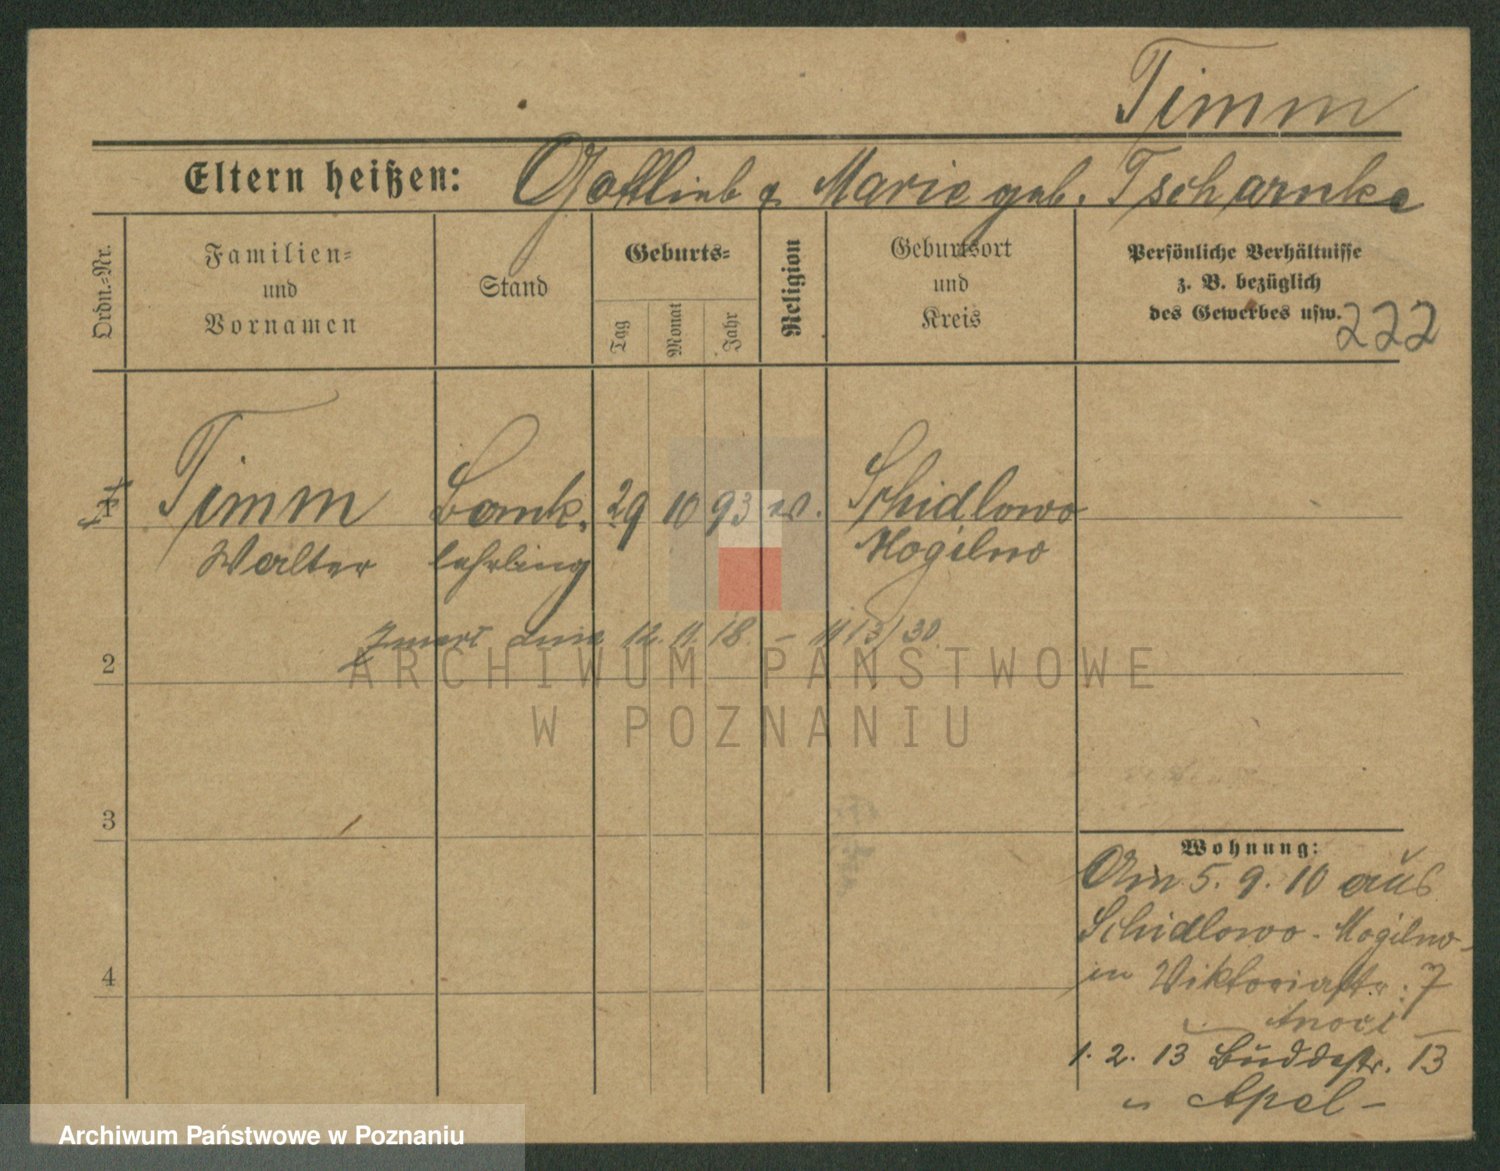 Timm
Eltern heißen: Gottlieb & Marie geb. Tscharnke
Ordn.-Nr.
Familien-
und
Vornamen
Stand
Geburts-
Tag
Monat
Jahr
Religion
Geburtsort
und
Kreis
Persönliche Verhältnisse
z. B. bezüglich
des Gewerbes usw.
222
1 Timm Bank. 29 10 93 ev. Schidlowo
Walter lehrling Mogilno
12. 11. 18. -
2
ARCHIWUM PAŃSTWOWE
W POZNANIU
3
4
Wohnung:
Am 5. 9. 10 aus
Schidlowo - Mogilno -
in Viktoriastr. 7
1. 2. 13 Buddestr. 13
Apel -
Archiwum Państwowe w Poznaniu